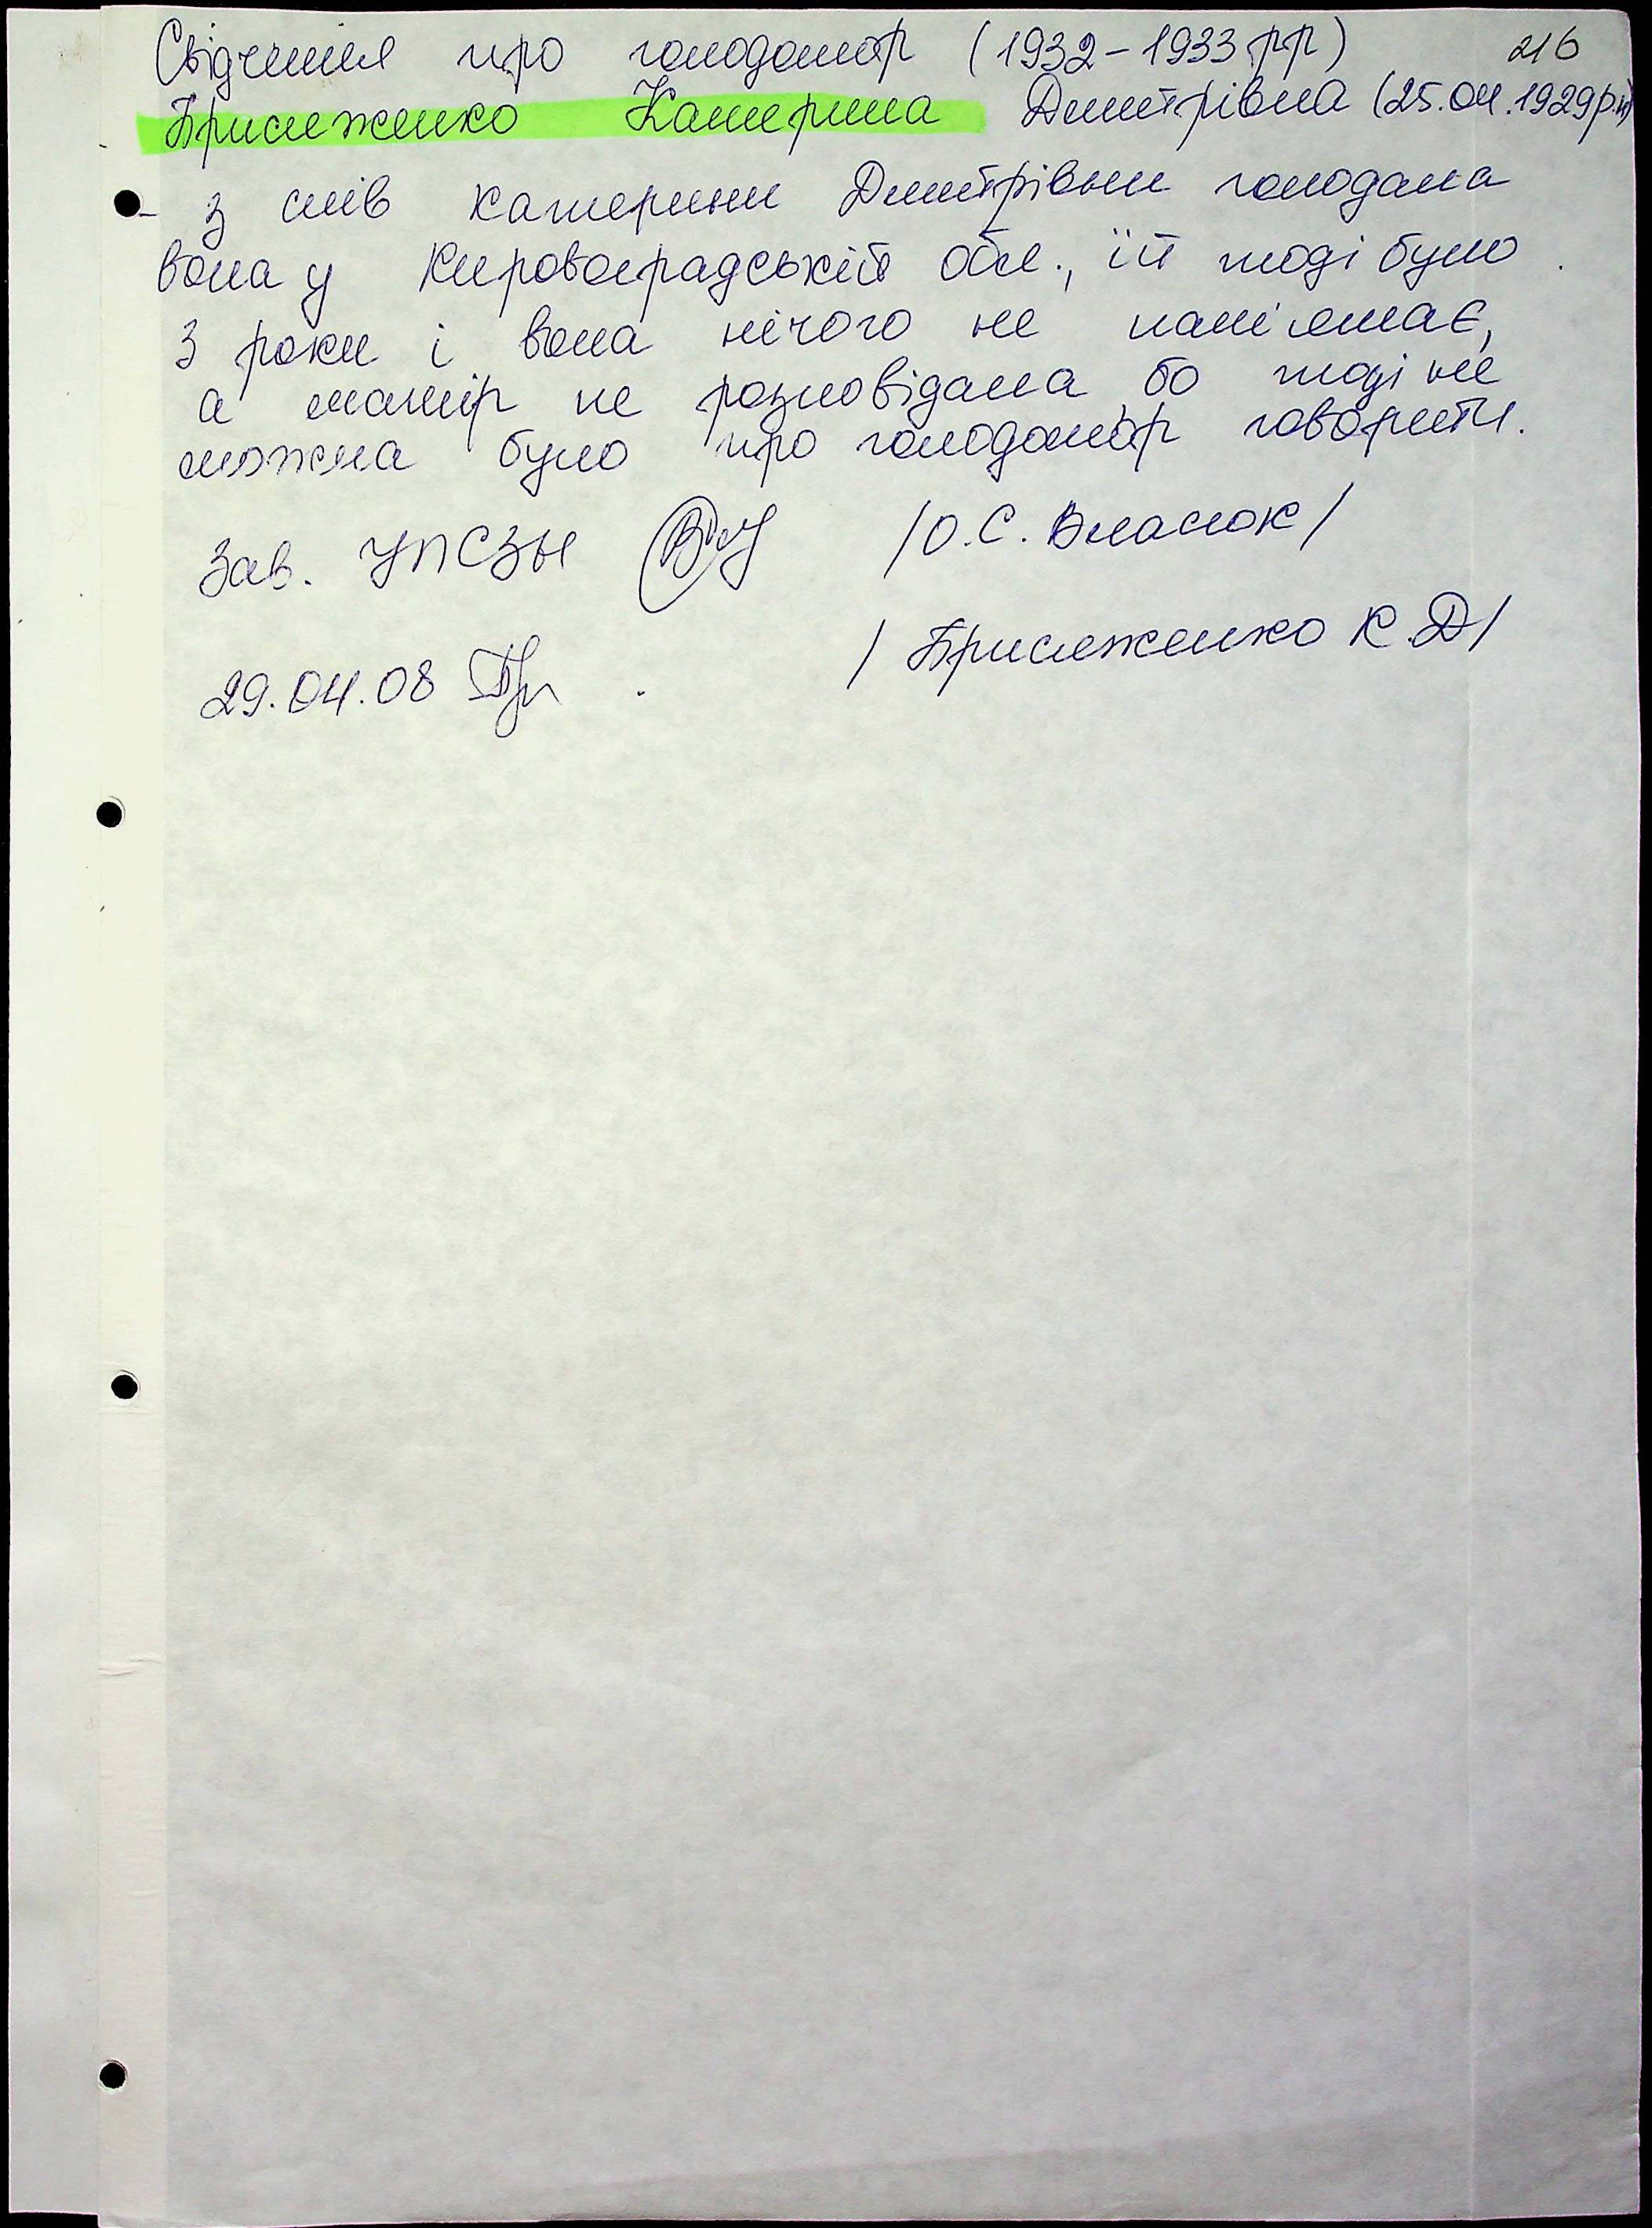 216
Свідчення про голодомор (1932-1933 рр)
Присяженко Катерина Дмитрівна (25.04.1929р.н)
- з слів Катерини Дмитрівни голодала
вона у Кировоградській обл., їй тоді було
3 роки і вона нічого не памі'ятає,
а матір не розповідала, бо тоді не
можна було про голодомор говорити.
Зав. УПСЗН /О.С. Власюк/
/Присяженко К.Д/
29.04.08